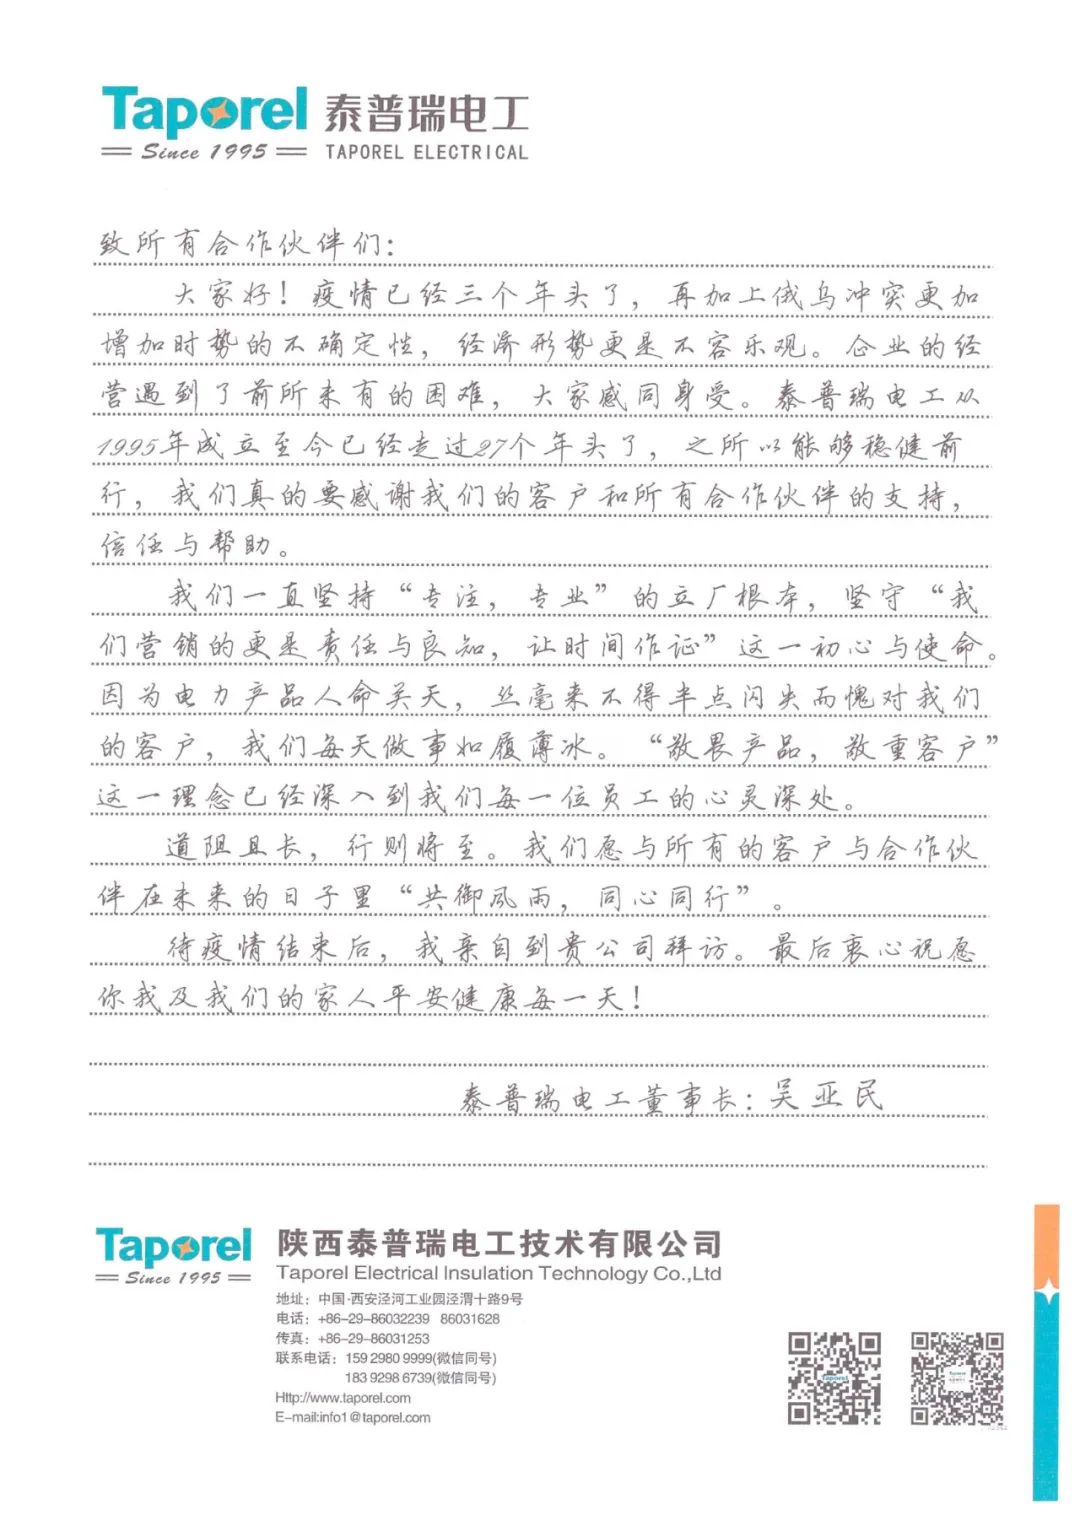 Taporel 泰普瑞电工
Since 1995 TAPOREL ELECTRICAL
致所有合作伙伴们：
大家好！疫情已经三个年头了，再加上俄乌冲突更加
增加时势的不确定性，经济形势更是不容乐观。企业的经
营遇到了前所未有的困难，大家感同身受。泰普瑞电工从
1995年成立至今已经走过27个年头了，之所以能够稳健前
行，我们真的要感谢我们的客户和所有合作伙伴的支持，
信任与帮助。
我们一直坚持“专注，专业”的立厂根本，坚守“我
们营销的更是责任与良知，让时间作证”这一初心与使命。
因为电力产品人命关天，丝毫来不得半点闪失而愧对我们
的客户，我们每天做事如履薄冰。“敬畏产品，敬重客户”
这一理念已经深入到我们每一位员工的心灵深处。
道阻且长，行则将至。我们愿与所有的客户与合作伙
伴在未来的日子里“共御风雨，同心同行”。
待疫情结束后，我亲自到贵公司拜访。最后衷心祝愿
你我及我们的家人平安健康每一天！
泰普瑞电工董事长：吴亚民
Taporel 陕西泰普瑞电工技术有限公司
Since 1995 Taporel Electrical Insulation Technology Co.,Ltd
地址：中国·西安泾河工业园泾渭十路9号
电话：+86-29-86032239 86031628
传真：+86-29-86031253
联系电话：159 2980 9999(微信同号)
183 9298 6739(微信同号)
Http://www.taporel.com
E-mail:info1@taporel.com
Taporel